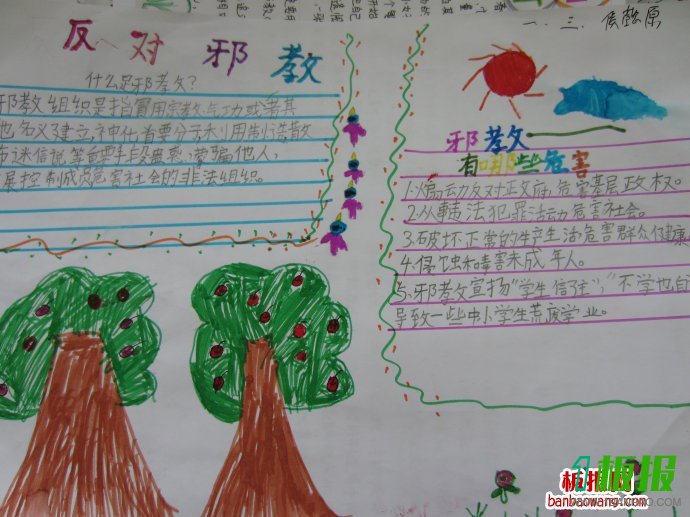 一、三、侯懿原
反对邪教
什么是邪教?
邪教组织是指冒用宗教气功或者其
他名义建立,神化首要分子,利用制造散
布迷信说等要手段蛊惑,蒙骗他人,
展控制成员危害社会的非法组织。
邪教
有哪些危害
1.煽动反对正政府,危害基层政权。
2.从事违法犯罪活动危害社会。
3.破坏正常的生产生活危害群众健康
4.侵蚀和毒害未成年人。
5.邪教宣扬"学生信主","不学也自
导致一些中小学生荒废学业。
板报
板报网
banbaowang.com